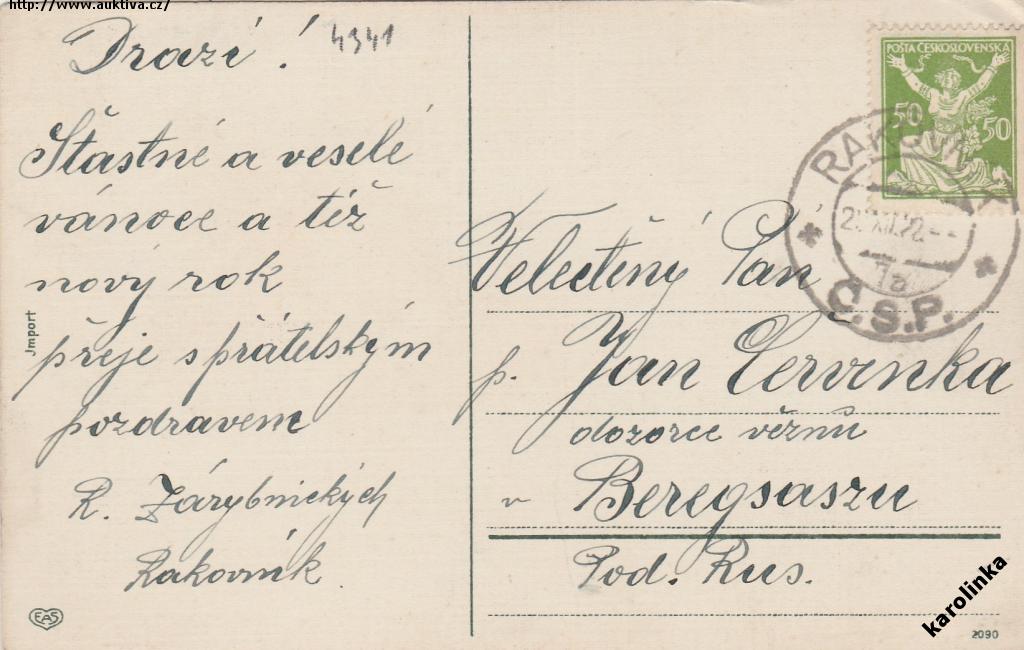 http://www.auktiva.cz/
4341
Drazí!
Šťastné a veselé
vánoce a též
nový rok
přeje s přátelským
pozdravem
R. Zárybnických
Rakovník.
Jmport
EAS
POŠTA ČESKOSLOVENSKÁ
50 50
RAKOVNÍK
XII.22
7a
Č.S.P.
Velectěný Pán
p. Jan Červenka
dozorce vězňů
v Beregsaszu
Pod. Rus.
2090
karolinka